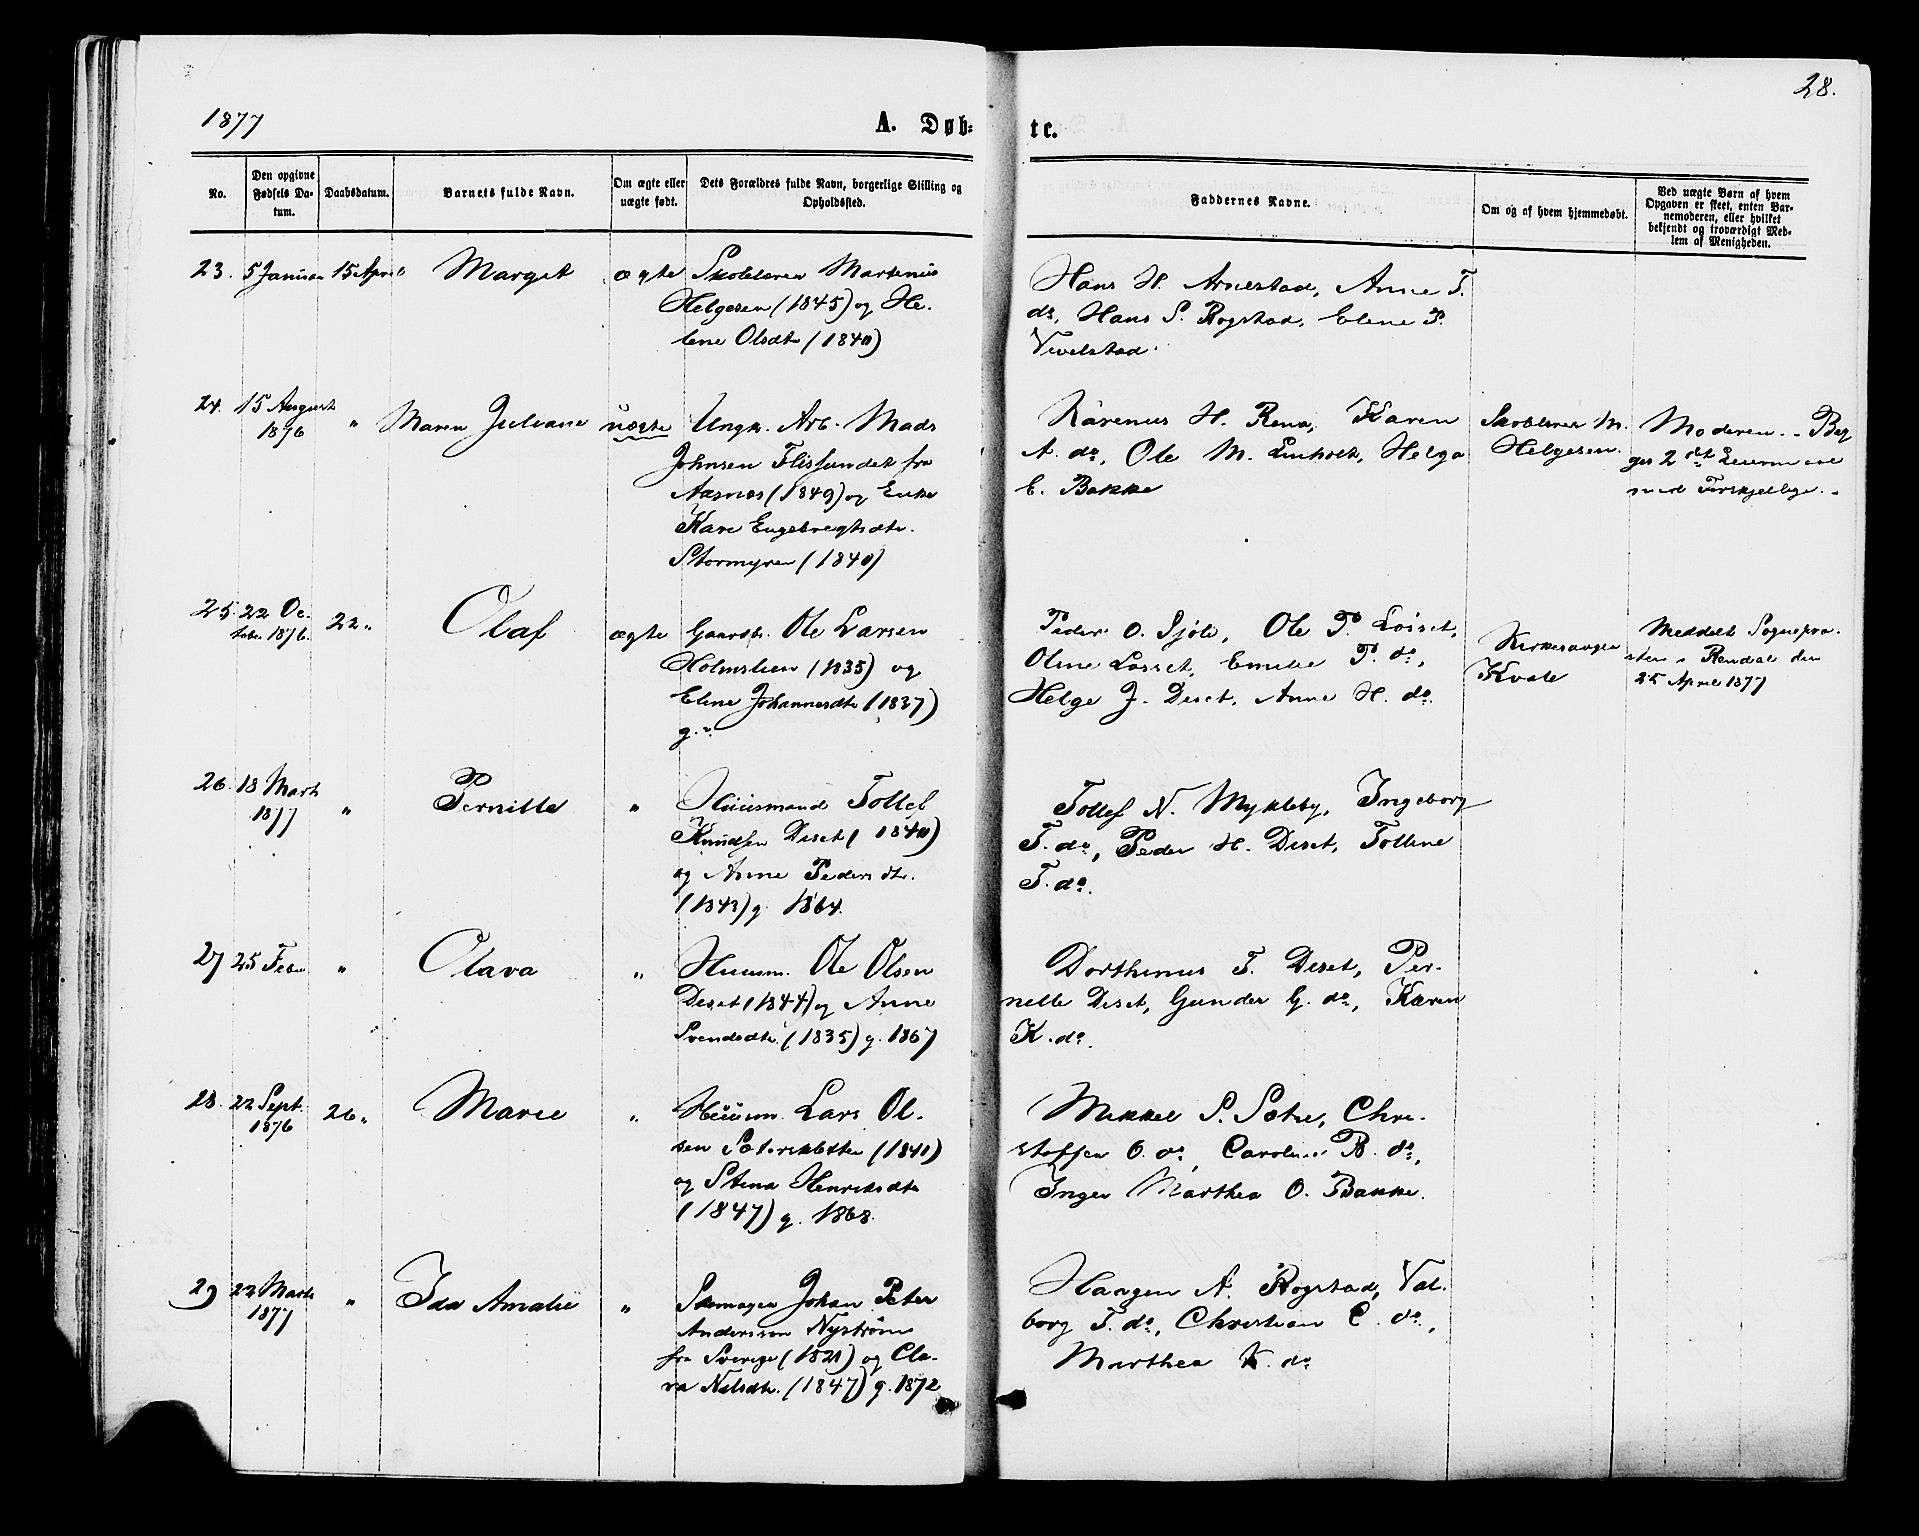 28.
1877
A. Døb-
te.
No.
Den opgivne
Fødsels Da-
tum.
Daabsdatum.
Barnets fulde Navn.
Om ægte eller
uægte født.
Dets Forældres fulde Navn, borgerlige Stilling og
Opholdssted.
Faddernes Navne.
Om og af hvem hjemmedøbt.
Ved uægte Børn af hvem
Opgaven er skeet, enten Bar-
nemoderen, eller hvilket
bekjendt og troværdigt Med-
lem af Menigheden.
23. 5 Januar 15 April Margit ægte Skolelærer Martinius
Helgesen (1845) og He-
lene Olsdtr (1840)
Hans H. Arnestad, Anne T.
do, Hans S. Rogstad, Elene P.
Vevelstad.
24. 15 August
1876 " Maren Juliane uægte Ungk. Arb. Mads
Johnsen Flissundet fra
Aasnæs (1849) og Enke
Kari Engebregtsdtr.
Stormyren (1840)
Karenus H. Rena, Karen
A. do, Ole M. Linholt, Helga
E. Bakke
Skolelærer M.
Helgesen.
Moderen. - Beg
ges 2det Leiermaal
med Forskjellige. -
25. 22 Oc.
tobr. 1876. 22 " Olaf ægte Gaardbr. Ole Larsen
Holmstien (1835) og
Eline Johannesdtr (1837)
g. "
Peder O. Sjøli, Ole P. Losset,
Oline Losset, Emilie P. do,
Helge J. Diset, Anne H. do.
Kirkesanger
Kvale
Meddelt Sognepræ-
sten i Rendal den
25 April 1877
26. 18 Marts
1877 " Pernille " Huusmand Tollef
Knudsen Diset (1840)
og Anne Pedersdtr.
(1843) g. 1864.
Tollef N. Mykleby, Ingeborg
T. do, Peder H. Diset, Tolline
T. do.
27 25 Febr " Olava " Huusm. Ole Olsen
Diset (1844) og Anne
Svendsdtr. (1835) g. 1867
Dorthinus T. Diset, Per-
nelle Diset, Gunder G. do, Karen
K. do.
28. 22 Sept.
1876 26 " Marie " Huusm. Lars Ol-
sen Sæterkletten (1840)
og Stina Henriksdtr
(1847) g. 1868.
Mikkel S. Sætre, Chri-
stoffer O. do, Caroline B. do,
Inger Marthea O. Bakke.
29 22 Marts
1877 " Ida Amalie " Skomager Johan Peter
Anderson Nystrøm
fra Sverige (1821) og Cla-
ra Nilsdtr. (1847) g. 1872
Haagen A. Rogstad, Val-
borg T. do, Christian C. do,
Marthea K. do